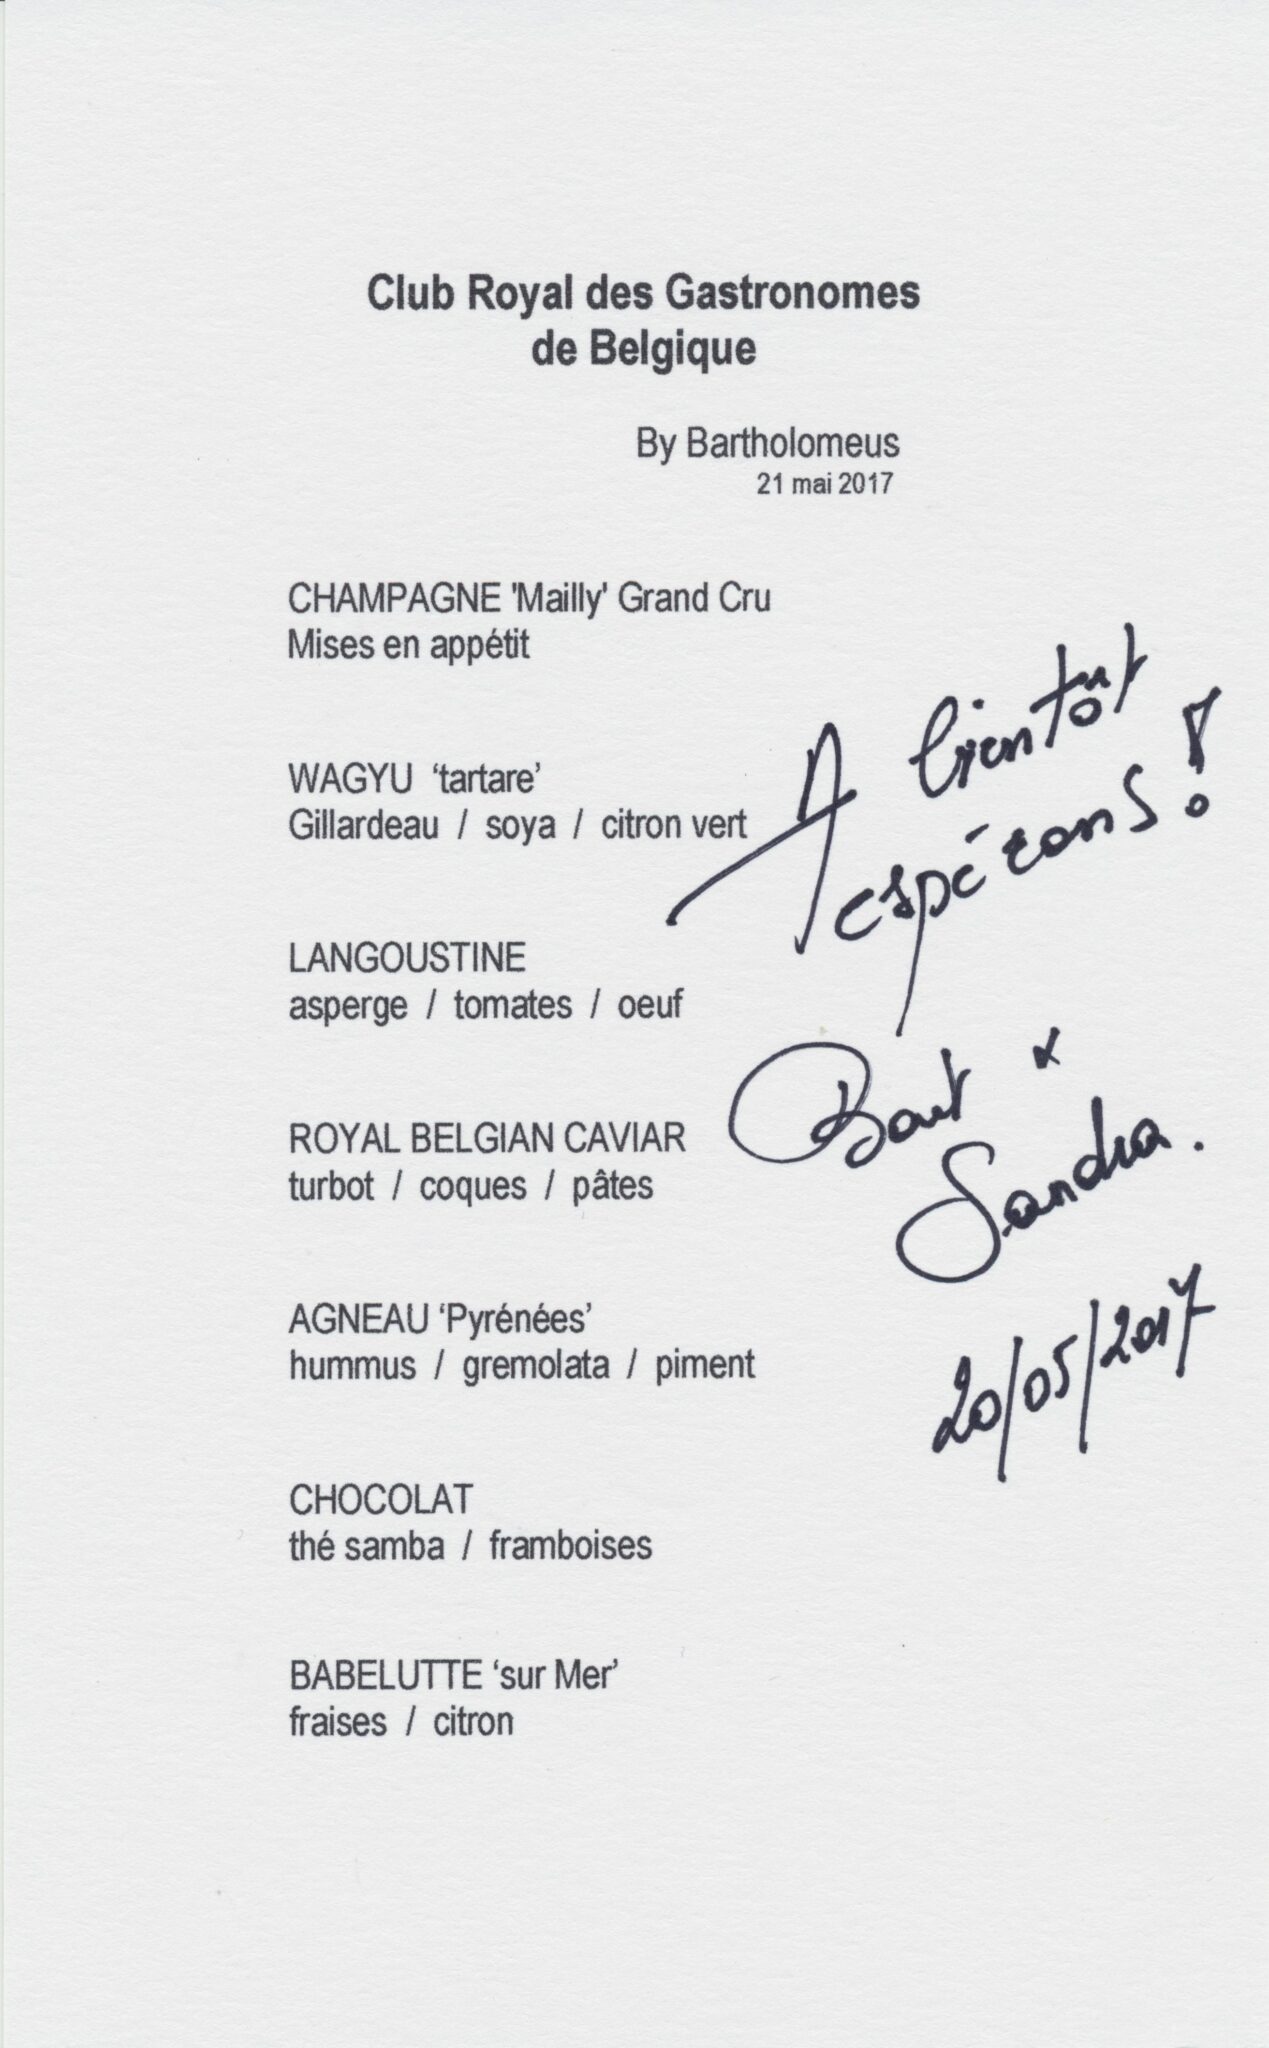 Club Royal des Gastronomes
de Belgique
By Bartholomeus
21 mai 2017
CHAMPAGNE 'Mailly' Grand Cru
Mises en appétit
WAGYU ‘tartare’
Gillardeau / soya / citron vert
LANGOUSTINE
asperge / tomates / oeuf
ROYAL BELGIAN CAVIAR
turbot / coques / pâtes
AGNEAU ‘Pyrénées’
hummus / gremolata / piment
CHOCOLAT
thé samba / framboises
BABELUTTE ‘sur Mer’
fraises / citron
A bientôt
espérons !
&
Sandra.
20/05/2017